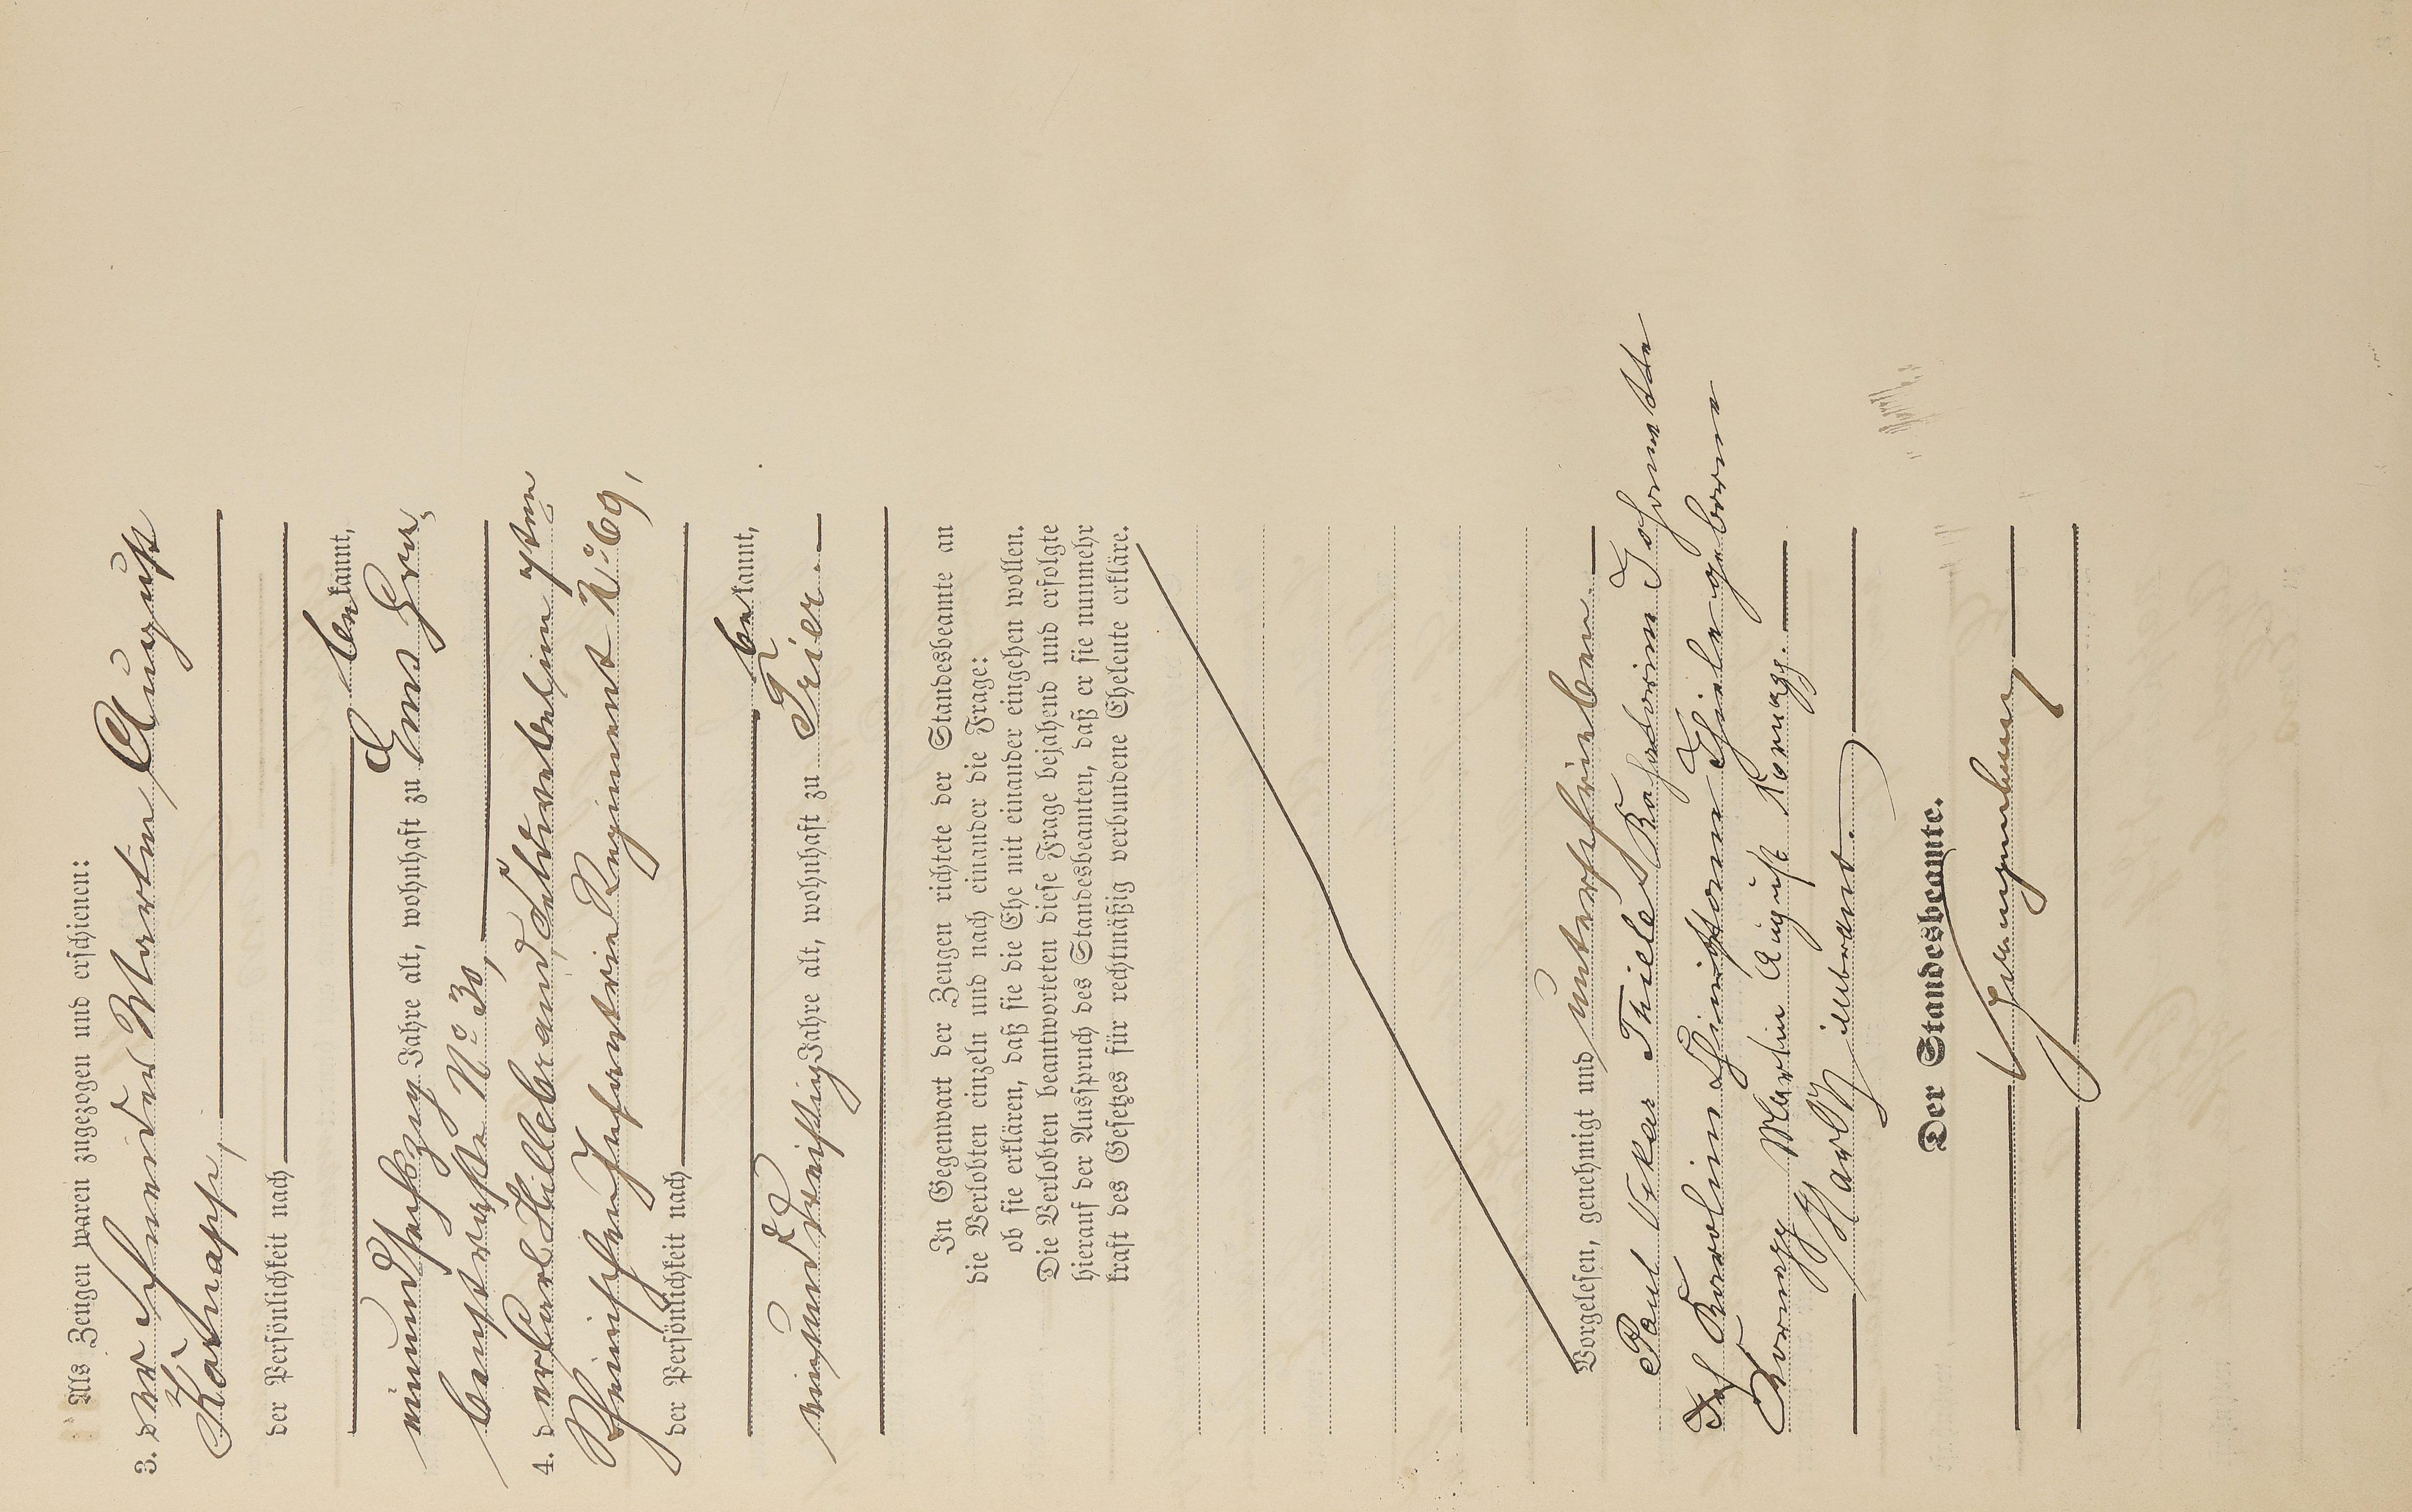 Als Zeugen waren zugezogen und erschienen:
3. der Schneider Martin August
Kornapp,
der Persönlichkeit nach
bekannt,
neunundsechzig Jahre alt, wohnhaft zu Ems Gra-
benstraße No 30,
4. der Karl Hillebrand, Feldwebel im 7ten
Rheinischen Infanterie Regiment No 69,
der Persönlichkeit nach
bekannt,
einunddreißig Jahre alt, wohnhaft zu Trier.
In Gegenwart der Zeugen richtete der Standesbeamte an
die Verlobten einzeln und nach einander die Frage:
ob sie erklären, daß sie die Ehe mit einander eingehen wollen.
Die Verlobten beantworteten diese Frage bejahend und erfolgte
hierauf der Ausspruch des Standesbeamten, daß er sie nunmehr
kraft des Gesetzes für rechtmäßig verbundene Eheleute erkläre.
Vorgelesen, genehmigt und unterschrieben.
Paul Oskar Thiele Katharina Johannette
Karolina Thiele geborene
Kornapp Martin August Kornapp.
Karl Hillebrand.
Der Standesbeamte.